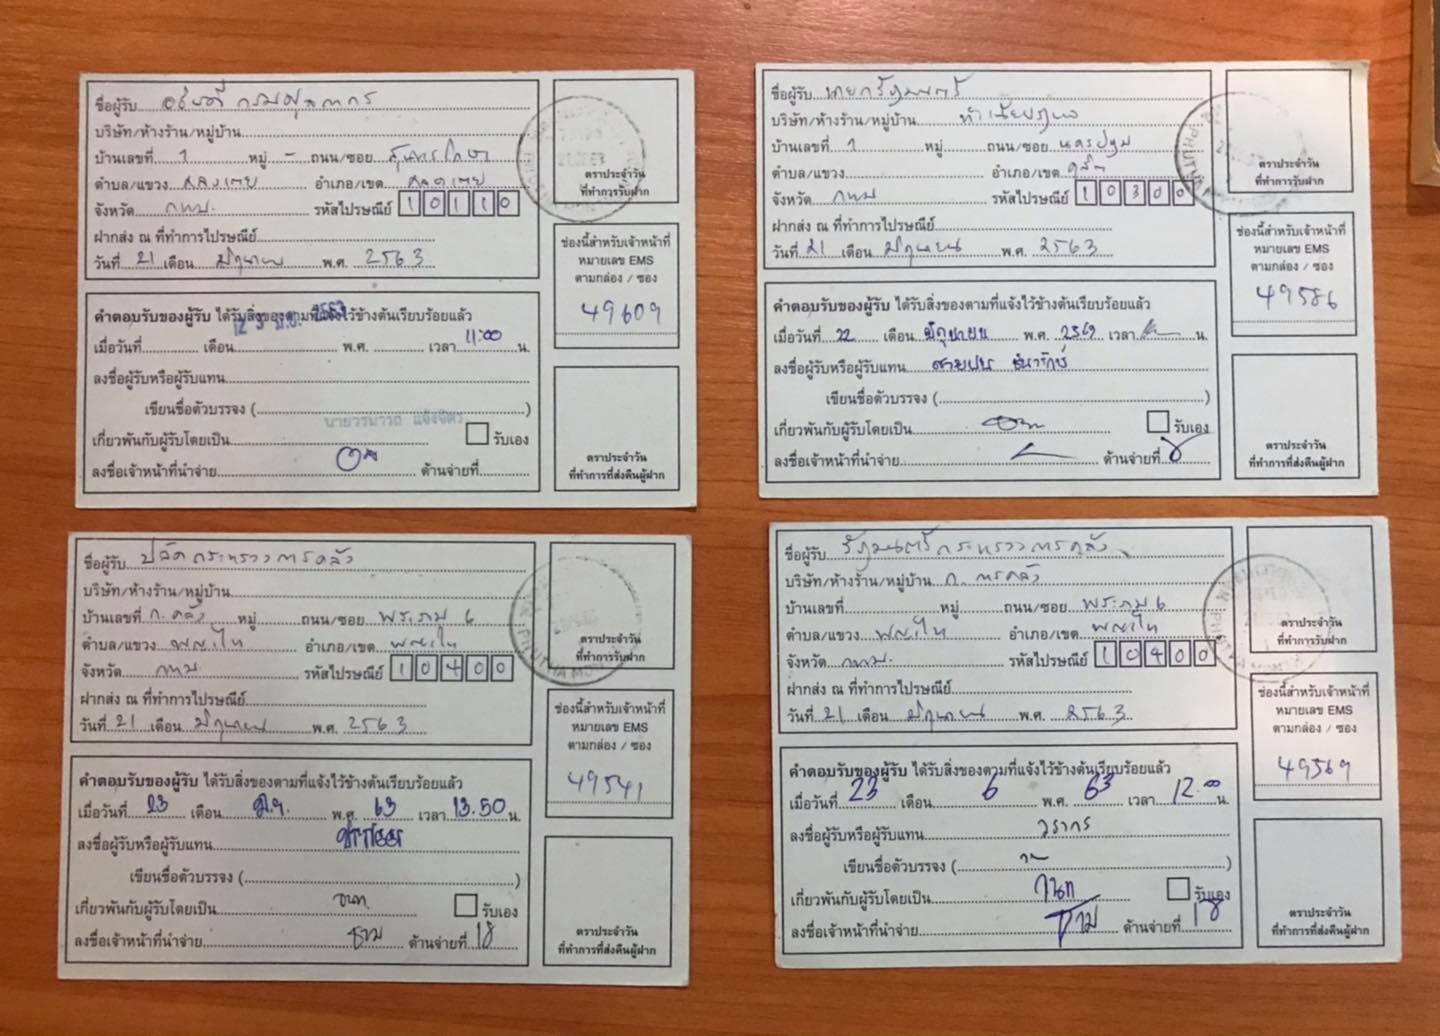 ชื่อผู้รับ อธิบดีกรมศุลกากร
บริษัท/ห้างร้าน/หมู่บ้าน
บ้านเลขที่ 1 หมู่ - ถนน/ซอย สุนทรโกษา
ตำบล/แขวง คลองเตย อำเภอ/เขต คลองเตย
จังหวัด กทม. รหัสไปรษณีย์ 10110
ฝากส่ง ณ ที่ทำการไปรษณีย์
วันที่ 21 เดือน มิถุนายน พ.ศ. 2563
คำตอบรับของผู้รับ ได้รับสิ่งของตามที่แจ้งไว้ข้างต้นเรียบร้อยแล้ว
เมื่อวันที่ เดือน พ.ศ. เวลา 11:00 น.
ลงชื่อผู้รับหรือผู้รับแทน
เขียนชื่อตัวบรรจง ( )
เกี่ยวพันกับผู้รับโดยเป็น รับเอง
ลงชื่อเจ้าหน้าที่นำจ่าย ด้านจ่ายที่
ตราประจำวัน
ที่ทำการรับฝาก
ช่องนี้สำหรับเจ้าหน้าที่
หมายเลข EMS
ตามกล่อง / ซอง
49609
ตราประจำวัน
ที่ทำการที่ส่งคืนผู้ฝาก
ชื่อผู้รับ นายกรัฐมนตรี
บริษัท/ห้างร้าน/หมู่บ้าน ทำเนียบรัฐบาล
บ้านเลขที่ 1 หมู่ ถนน/ซอย นครปฐม
ตำบล/แขวง อำเภอ/เขต ดุสิต
จังหวัด กทม รหัสไปรษณีย์ 10300
ฝากส่ง ณ ที่ทำการไปรษณีย์
วันที่ 21 เดือน มิถุนายน พ.ศ. 2563
คำตอบรับของผู้รับ ได้รับสิ่งของตามที่แจ้งไว้ข้างต้นเรียบร้อยแล้ว
เมื่อวันที่ 22 เดือน มิถุนายน พ.ศ. 2563 เวลา น.
ลงชื่อผู้รับหรือผู้รับแทน
เขียนชื่อตัวบรรจง ( )
เกี่ยวพันกับผู้รับโดยเป็น รับเอง
ลงชื่อเจ้าหน้าที่นำจ่าย ด้านจ่ายที่
ตราประจำวัน
ที่ทำการรับฝาก
ช่องนี้สำหรับเจ้าหน้าที่
หมายเลข EMS
ตามกล่อง / ซอง
49586
ตราประจำวัน
ที่ทำการที่ส่งคืนผู้ฝาก
ชื่อผู้รับ ปลัดกระทรวงการคลัง
บริษัท/ห้างร้าน/หมู่บ้าน
บ้านเลขที่ ก. คลัง หมู่ ถนน/ซอย พระราม 6
ตำบล/แขวง พญาไท อำเภอ/เขต พญาไท
จังหวัด กทม. รหัสไปรษณีย์ 10400
ฝากส่ง ณ ที่ทำการไปรษณีย์
วันที่ 21 เดือน มิถุนายน พ.ศ. 2563
คำตอบรับของผู้รับ ได้รับสิ่งของตามที่แจ้งไว้ข้างต้นเรียบร้อยแล้ว
เมื่อวันที่ 23 เดือน มิ.ย. พ.ศ. 63 เวลา 13.50 น.
ลงชื่อผู้รับหรือผู้รับแทน
เขียนชื่อตัวบรรจง ( )
เกี่ยวพันกับผู้รับโดยเป็น รับเอง
ลงชื่อเจ้าหน้าที่นำจ่าย ด้านจ่ายที่ 18
ตราประจำวัน
ที่ทำการรับฝาก
ช่องนี้สำหรับเจ้าหน้าที่
หมายเลข EMS
ตามกล่อง / ซอง
49541
ตราประจำวัน
ที่ทำการที่ส่งคืนผู้ฝาก
ชื่อผู้รับ รัฐมนตรีกระทรวงการคลัง
บริษัท/ห้างร้าน/หมู่บ้าน ก. การคลัง
บ้านเลขที่ หมู่ ถนน/ซอย พระราม 6
ตำบล/แขวง พญาไท อำเภอ/เขต พญาไท
จังหวัด กทม. รหัสไปรษณีย์ 10400
ฝากส่ง ณ ที่ทำการไปรษณีย์
วันที่ 21 เดือน มิถุนายน พ.ศ. 2563
คำตอบรับของผู้รับ ได้รับสิ่งของตามที่แจ้งไว้ข้างต้นเรียบร้อยแล้ว
เมื่อวันที่ 23 เดือน 6 พ.ศ. 63 เวลา 12.00 น.
ลงชื่อผู้รับหรือผู้รับแทน วรากร
เขียนชื่อตัวบรรจง ( )
เกี่ยวพันกับผู้รับโดยเป็น รับเอง
ลงชื่อเจ้าหน้าที่นำจ่าย ด้านจ่ายที่ 18
ตราประจำวัน
ที่ทำการรับฝาก
ช่องนี้สำหรับเจ้าหน้าที่
หมายเลข EMS
ตามกล่อง / ซอง
49569
ตราประจำวัน
ที่ทำการที่ส่งคืนผู้ฝาก